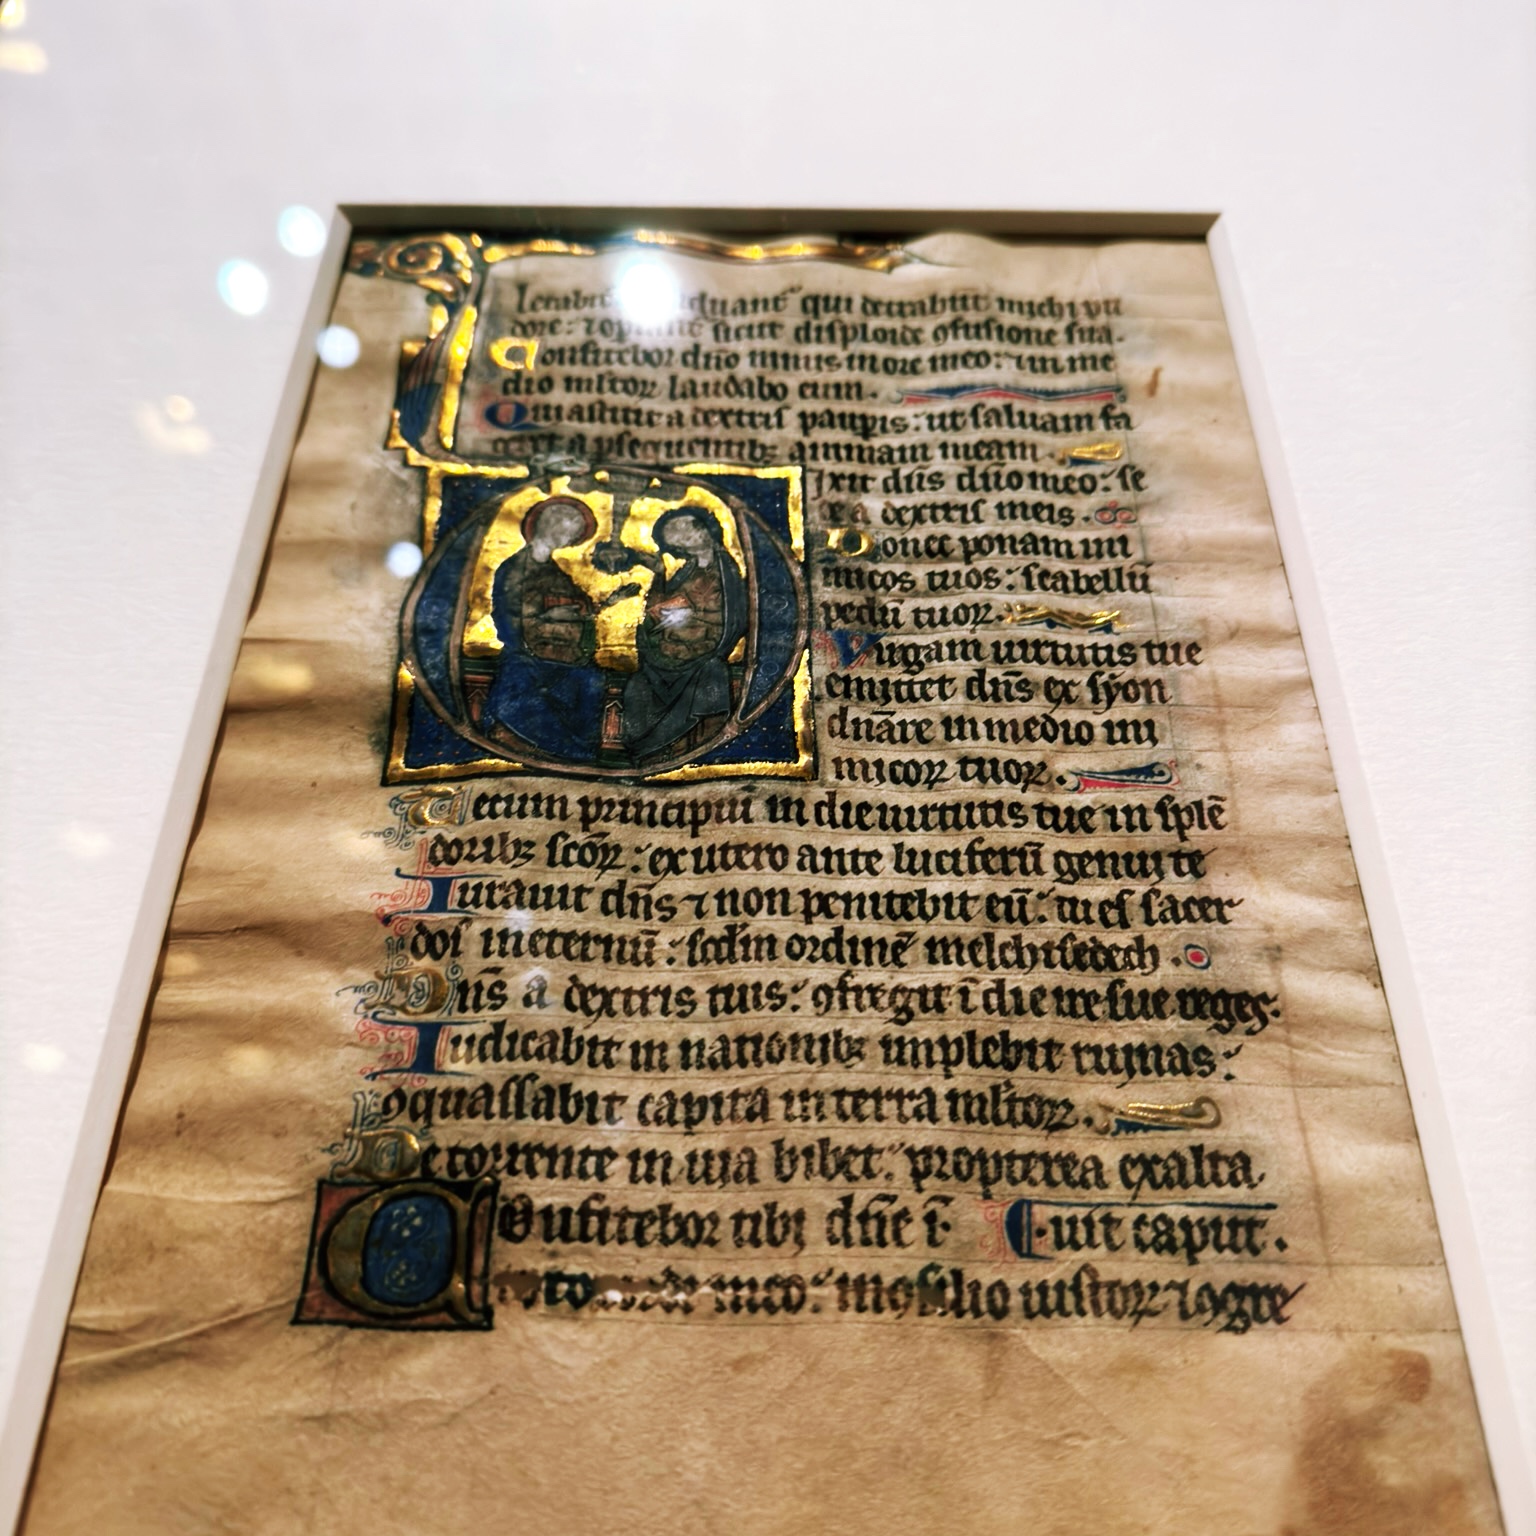 letabit induant qui detrahūt michi pu
dore: ⁊ opiantͬ sicut disploide ꝯfusione sua.
Confitebor dn̄o nimis in ore meo: ⁊ in me
dio ml̄toꝝ laudabo eum.
Qui astitit a dextris paup̲is: ut saluam fa
ceret a p̲sequentibꝫ animam meam.
Dixit dn̄s dn̄o meo: se
de a dextris meis.
Donec ponam ini
micos tuos: scabellū
pedū tuoꝝ.
Virgam uirtutis tue
emittet dn̄s ex syon
dn̄are in medio ini
micoꝝ tuoꝝ.
Tecum principiū in die uirtutis tue in splē
doribꝫ sc̄oꝝ: ex utero ante luciferū genui te
Iurauit dn̄s ⁊ non penitebit eū: tu es sacer
dos in eternū: scd̄m ordinē melchisedech.
Dn̄s a dextris tuis: ꝯfregit ī die ire sue reges.
Iudicabit in nationibꝫ implebit ruinas:
ꝯquassabit capita in terra ml̄toꝝ.
De torrente in uia bibet: propterea exalta
Confitebor tibi dn̄e ī uit caput.
toto corde meo: in ꝯsilio iustoꝝ ⁊ ꝯgre